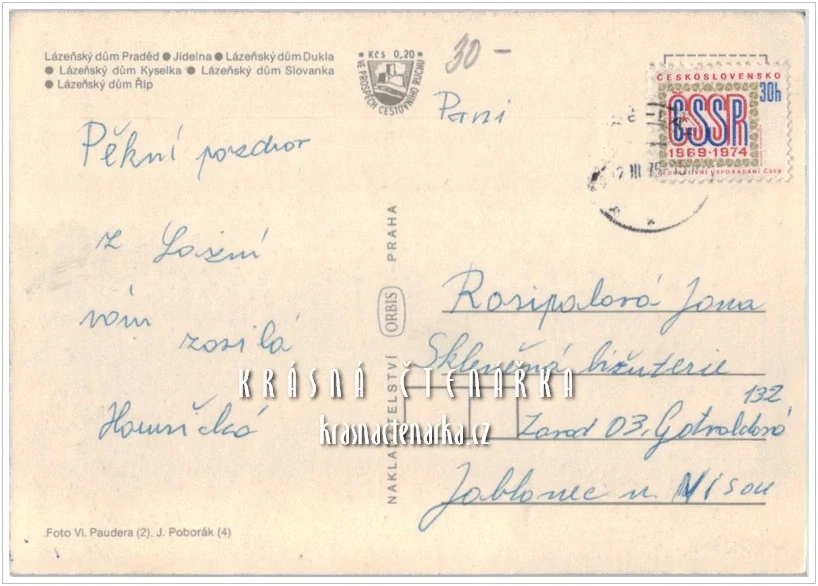 Lázeňský dům Praděd ● Jídelna ● Lázeňský dům Dukla
● Lázeňský dům Kyselka ● Lázeňský dům Slovanka
● Lázeňský dům Říp
Kčs 0,20
VE PROSPĚCH CESTOVNÍHO RUCHU
30 –
ČESKOSLOVENSKO
30h
ČSSR
1969·1974
Pěkní pozdrav
z Lázní
vám zasílá
Paní
Rosipalová Jana
Skleněná bižuterie
132
Závod 03, Gotvaldová
Jablonec n Nisou
NAKLADATELSTVÍ ORBIS PRAHA
KRÁSNÁ ČTENÁŘKA
krasnactenarka.cz
Foto Vl. Paudera (2), J. Poborák (4)